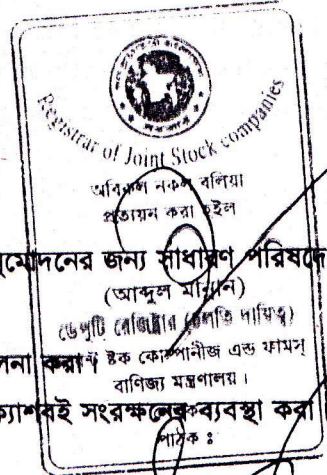 Registrar of Joint Stock companies
অবিকল নকল বলিয়া
প্রত্যয়ন করা হইল
মোদনের জন্য সাধারণ পরিষদে
(আব্দুল মান্নান)
ডেপুটি রেজিষ্ট্রার (চলতি দায়িত্ব)
না করা।
ষ্টক কোম্পানীজ এন্ড ফার্মস্
বাণিজ্য মন্ত্রণালয়।
ক্যাশবই সংরক্ষনের ব্যবস্থা করা